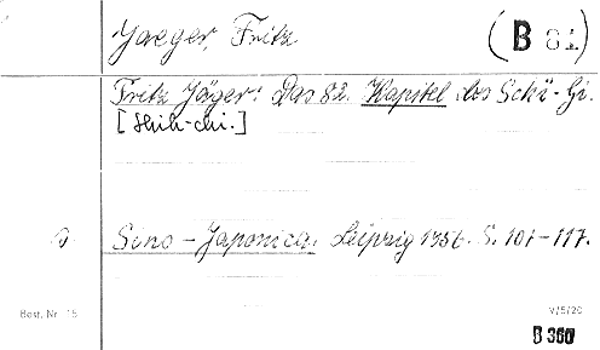 Jaeger, Fritz
(B 81)
Fritz Jäger: Das 82. Kapitel des Schï-Gi.
[Shih-chi.]
Sino-Japonica. Leipzig 1956. S. 107-117.
Best. Nr. 15
V/5/20
B 360